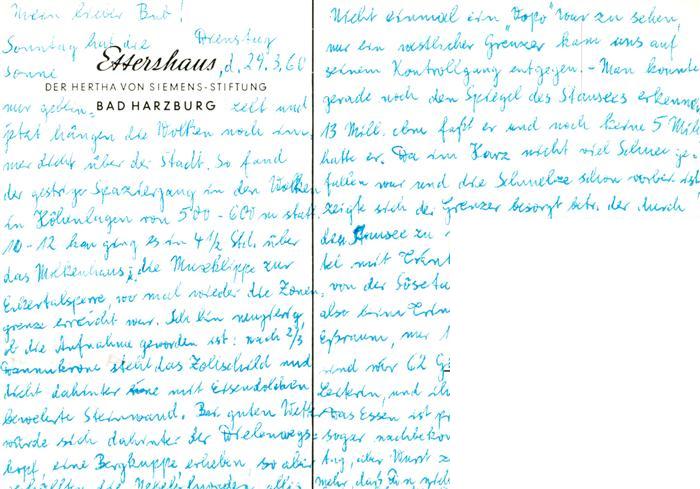 Mein lieber Bub!
Dienstag
Sonntag hat die
Ettershaus, d. 29.3.60
sonni
DER HERTHA VON SIEMENS-STIFTUNG
BAD HARZBURG
nur geblin- zelt und
jetzt hängen die Wolken noch im-
mer dicht über der Stadt. So fand
der gestrige Spaziergang in den Wolken
in Höhenlagen von 500 - 600 m statt.
10 - 12 km ging es in 4 1/2 Std. über
das Molkenhaus, die Muxklippe zur
Eckertalsperre, wo mal wieder die Zonen-
grenze erreicht war. Ich bin neugierig,
ob die Aufnahme geworden ist: nach 2/3
Dammkrone steht das Zollschild und
dicht dahinter eine mit Eisendolchen
bewehrte Steinwand. Bei guten Wetter
würde sich dahinter der
kopf, eine Bergkuppe erheben, so aber
Nicht einmal ein "Vopo" war zu sehen,
nur ein westlicher Grenzer kam uns auf
seinem Kontrollgang entgegen. - Man konnte
gerade noch den Spiegel des Stausees erkennen,
13 Mill. cbm faßt er und noch keine 5 Mill.
hatte er. Da im Harz nicht viel Schnee ge-
fallen war und die Schmelze schon vorbei ist
zeigte sich der Grenzer besorgt betr. der durch
den Stausee zu
tei mit Trink
von der Söseta
also beim Trin
sind wir 62
Leiterin, und ih
Das Essen ist
sogar nachbeko